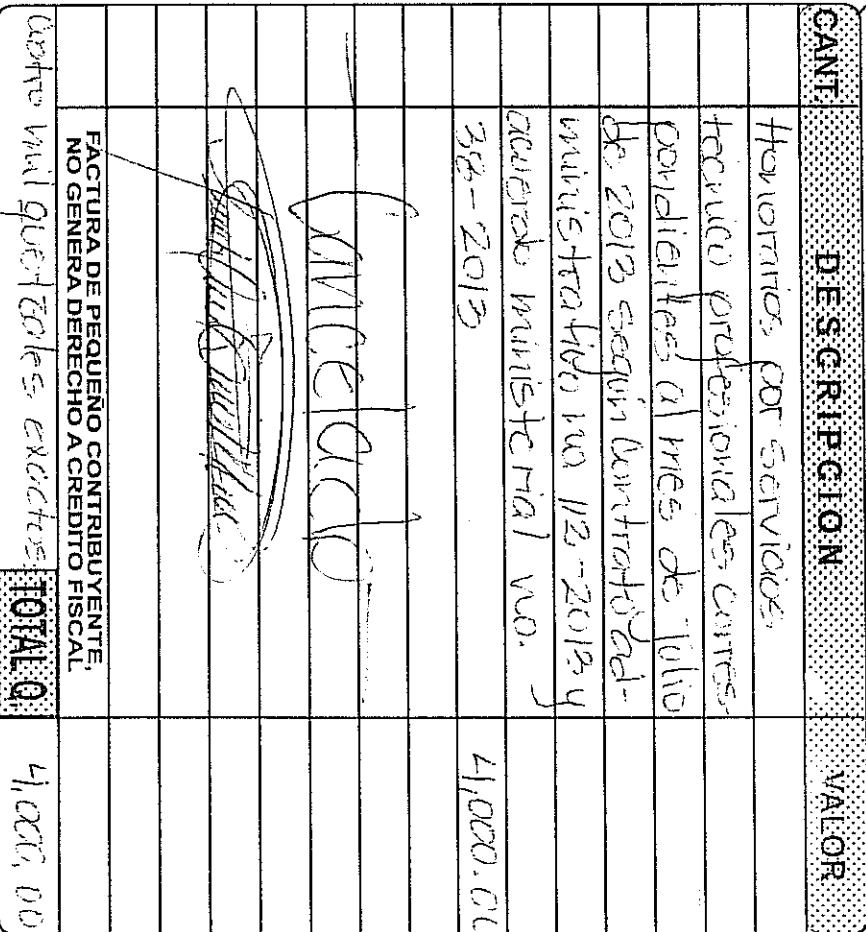 CANT. DESCRIPCION VALOR
Honorarios por servicios
tecnico profesionales corres-
pondientes al mes de Julio
de 2013 segun Contrato ad-
ministrativo no 112-2013 y
acuerdo ministerial no.
38-2013 4,000.00
Cancelado
FACTURA DE PEQUEÑO CONTRIBUYENTE,
NO GENERA DERECHO A CREDITO FISCAL
Cuatro mil quetzales exactos TOTAL Q. 4,000.00